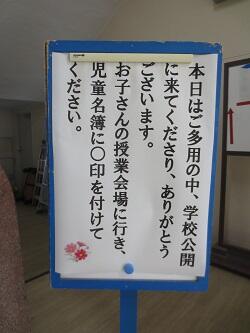 本日はご多用の中、学校公開
に来てくださり、ありがとう
ございます。
お子さんの授業会場に行き、
児童名簿に〇印を付けて
ください。